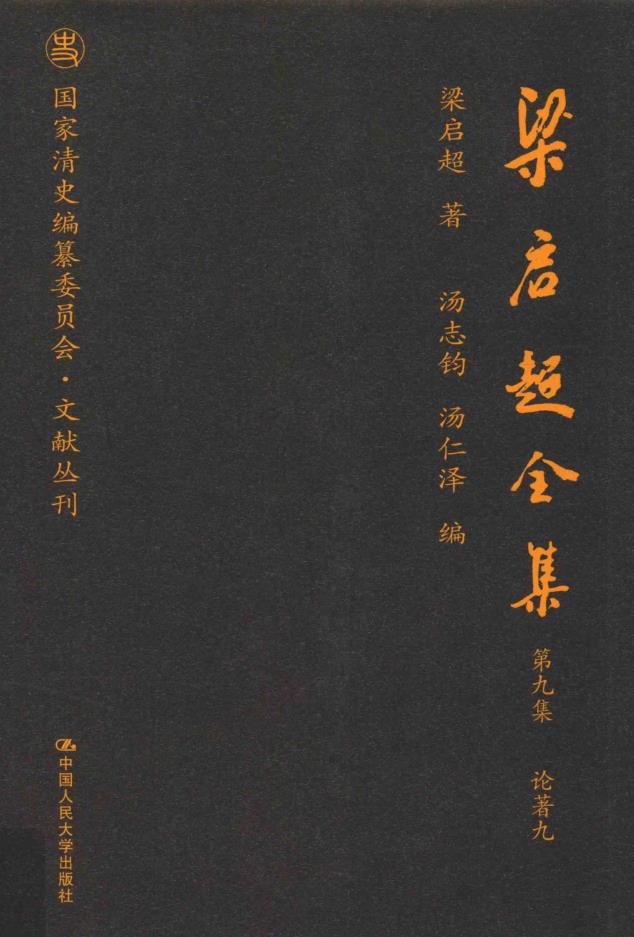 梁启超全集 第九集 论著九
梁启超 著 汤志钧 汤仁泽 编
国家清史编纂委员会·文献丛刊
中国人民大学出版社